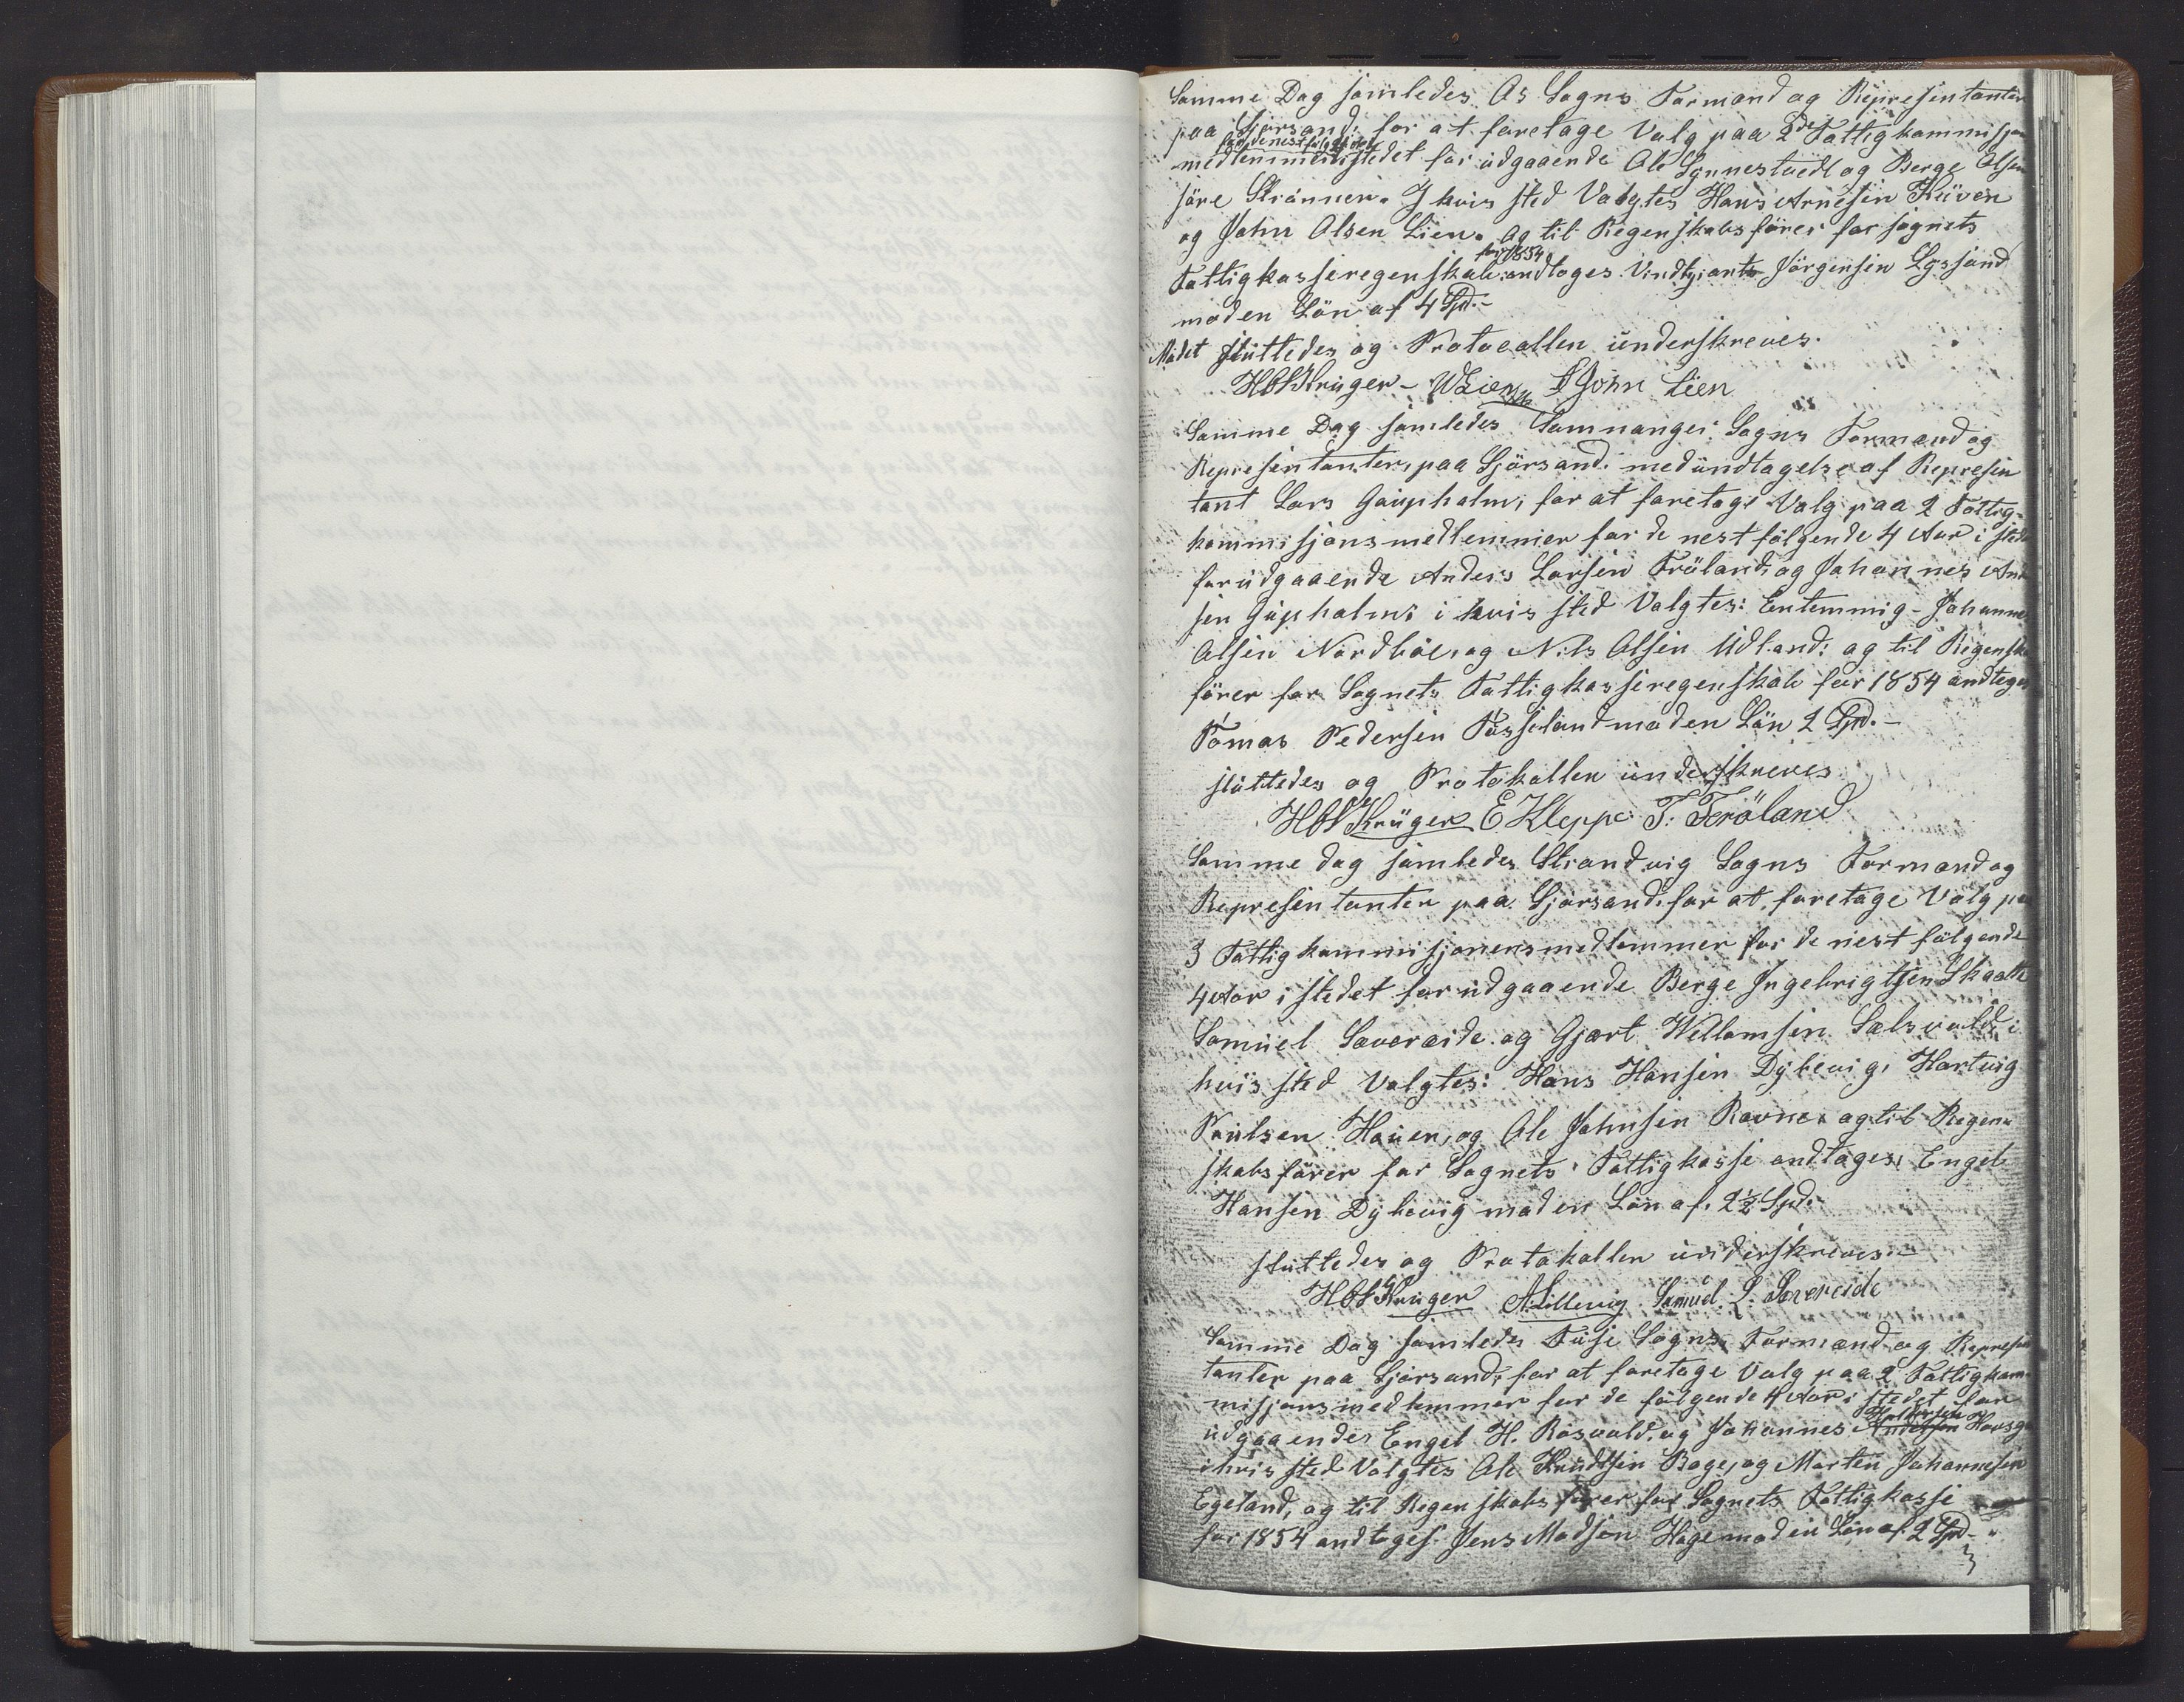 Samme Dag samledes Os Sogns Formænd og Repræsentanter
paa Sjørsand: for at foretage Valg paa 2de Fattigkommisjons
for de nest følgende 4 Aar
medlemmer istedet for udgaaende Ole Synnestvedt og Berge Olsen
søre Strønnen. I hvis sted Valgtes Hans Arnesen Kuven
og John Olsen Lien. Og til Regenskabsfører for sognets
for 1854
Fattigkasseregenskab andtoges Jørgensen Lyssand
mod en Løn af 4 Spd.-
Mødet sluttedes og Protocollen underskreves.
HOS Krüger - WLien John Lien
Samme Dag samledes Samnanger Sogns Formænd og
Repræsentanter, paa Sjørsand: med undtagelse af Repræsen
tant Lars Gaupholm, for at foretage Valg paa 2 Fattig-
kommisjonsmedlemmer for de nest følgende 4 Aar i sted
for udgaaende Anders Larsen Frøland, og Johannes
sen Gupholm; i hvis sted Valgtes: Entemmig - Johannes
Olsen Nordbøe, og Nils Olsen Udland: og til Regenska
fører for Sognets Fattigkasseregenskab for 1854 andtoges
Tomas Pedersen Tøsseland mod en Løn 2 Spd.-
sluttedes og Protokollen underskreves
HOS Krüger E Kleppe T. Frøland
Samme dag samledes Strandvig Sogns Formænd og
Repræsentanter paa Sjørsand. for at foretage Valg paa
3 Fattigkommisjonensmedlemmer for de nest følgende
4 Aar istedet for udgaaende Berge Ingebrigtsen Skaate
Samuel Sævareide og Gjært Willomsen Sælsvold: i
hvis sted Valgtes: Hans Hansen Dybevig, Hartvig
Poulsen Hauen, og Ole Johnsen Ravne. og til Regen-
skabsfører for Sognets Fattigkasse andtoges Engel
Hansen Dybevig mod en Løn af. 2½ Spd.
sluttedes og Protokollen underskreves.-
HOS Krüger A Lillevig Samuel L. Severeide
Samme Dag samledes Fuse Sogns Formænd og Repræsen
tanter paa Sjørsand, for at foretage Valg paa 2 Fattigkom-
misjonsmedlemmer for de følgende 4 Aar i stedet for
udgaaende Engel H. Røsvold. og Johannes Andersen
i hvis sted Valgtes Ole Knudsen Boge, og Marten Johannesen
Egeland, og til Regenskabsfører for Sognets Fattigkasse
for 1854 andtoges. Jens Madsen Hage mod en Løn af. 2 Spd-